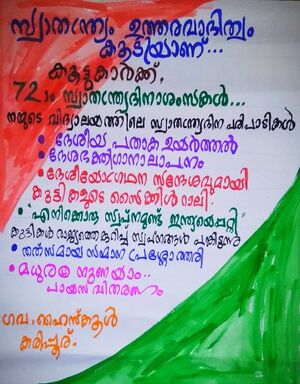 സ്വാതന്ത്ര്യം ഉത്തരവാദിത്വം
കൂടിയാണ്...
കൂട്ടുകാർക്ക്,
72ാം സ്വാതന്ത്ര്യദിനാശംസകൾ...
നമ്മുടെ വിദ്യാലയത്തിലെ സ്വാതന്ത്ര്യദിന പരിപാടികൾ
• ദേശീയ പതാക ഉയർത്തൽ
• ദേശഭക്തിഗാനാലാപനം
• ദേശീയോദ്ഗ്രഥന സന്ദേശവുമായി
കുട്ടികളുടെ സൈക്കിൾ റാലി.
• "എനിക്കൊരു സ്വപ്നമുണ്ട് ഇന്ത്യയെപ്പറ്റി"
കുട്ടികൾ രാജ്യത്തെക്കുറിച്ച് സ്വപ്നങ്ങൾ പങ്കിടുന്നു
• തത്സമയ സമ്മാന പ്രശ്നോത്തരി
• മധുരം നുണയാം..
പായസ വിതരണം
ഗവ. ഹൈസ്കൂൾ
കരിപ്പൂര്.